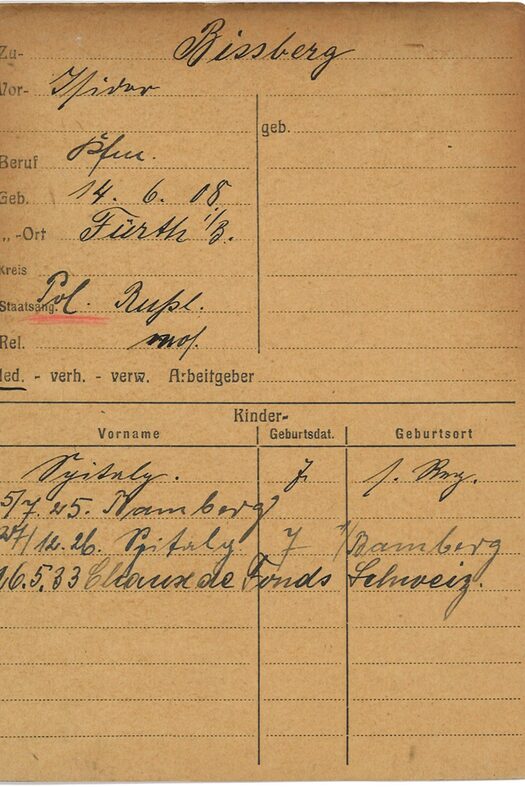 Zu- Bissberg
Vor- Isidor
geb.
Beruf Kfm.
Geb. 14. 6. 08
„ -Ort Fürth i/B.
Kreis
Staatsang. Pol. Rußl.
Rel. mos.
led. - verh. - verw. Arbeitgeber
Kinder-
Vorname Geburtsdat. Geburtsort
7
5/7 25. Bamberg
27/12.26. 7 v/Bamberg
16.5.33 Chaux de Fonds Schweiz.